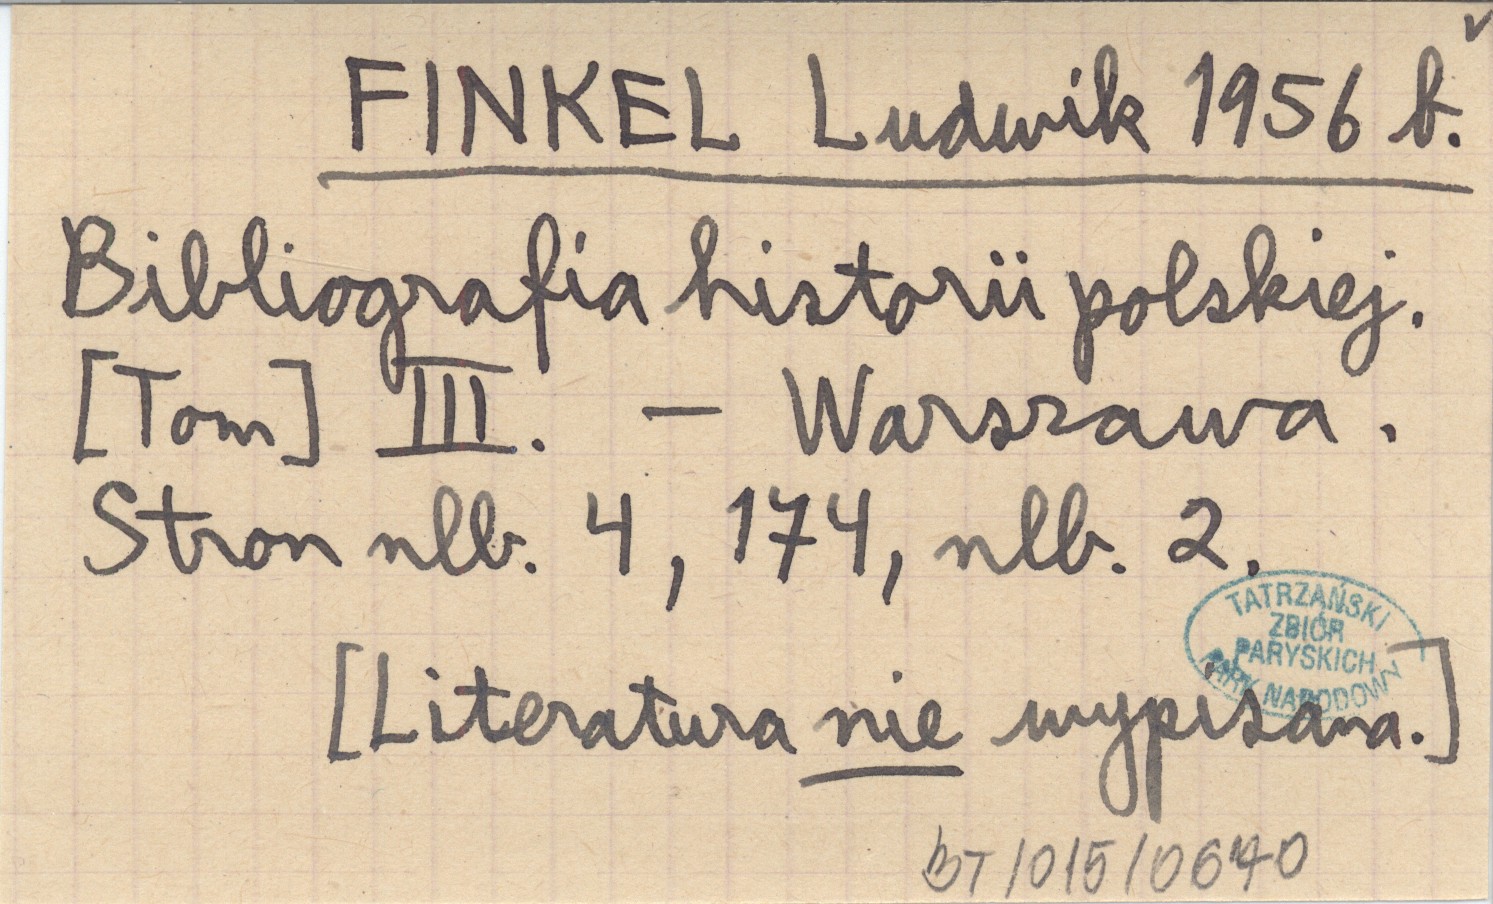 v
FINKEL Ludwik 1956 b.
Bibliografia historii polskiej.
[Tom] III. – Warszawa.
Stron nlb. 4, 174, nlb. 2.
TATRZAŃSKI
ZBIÓR
PARYSKICH
PARK NARODOWY
[Literatura nie wypisana.]
BT/015/0640